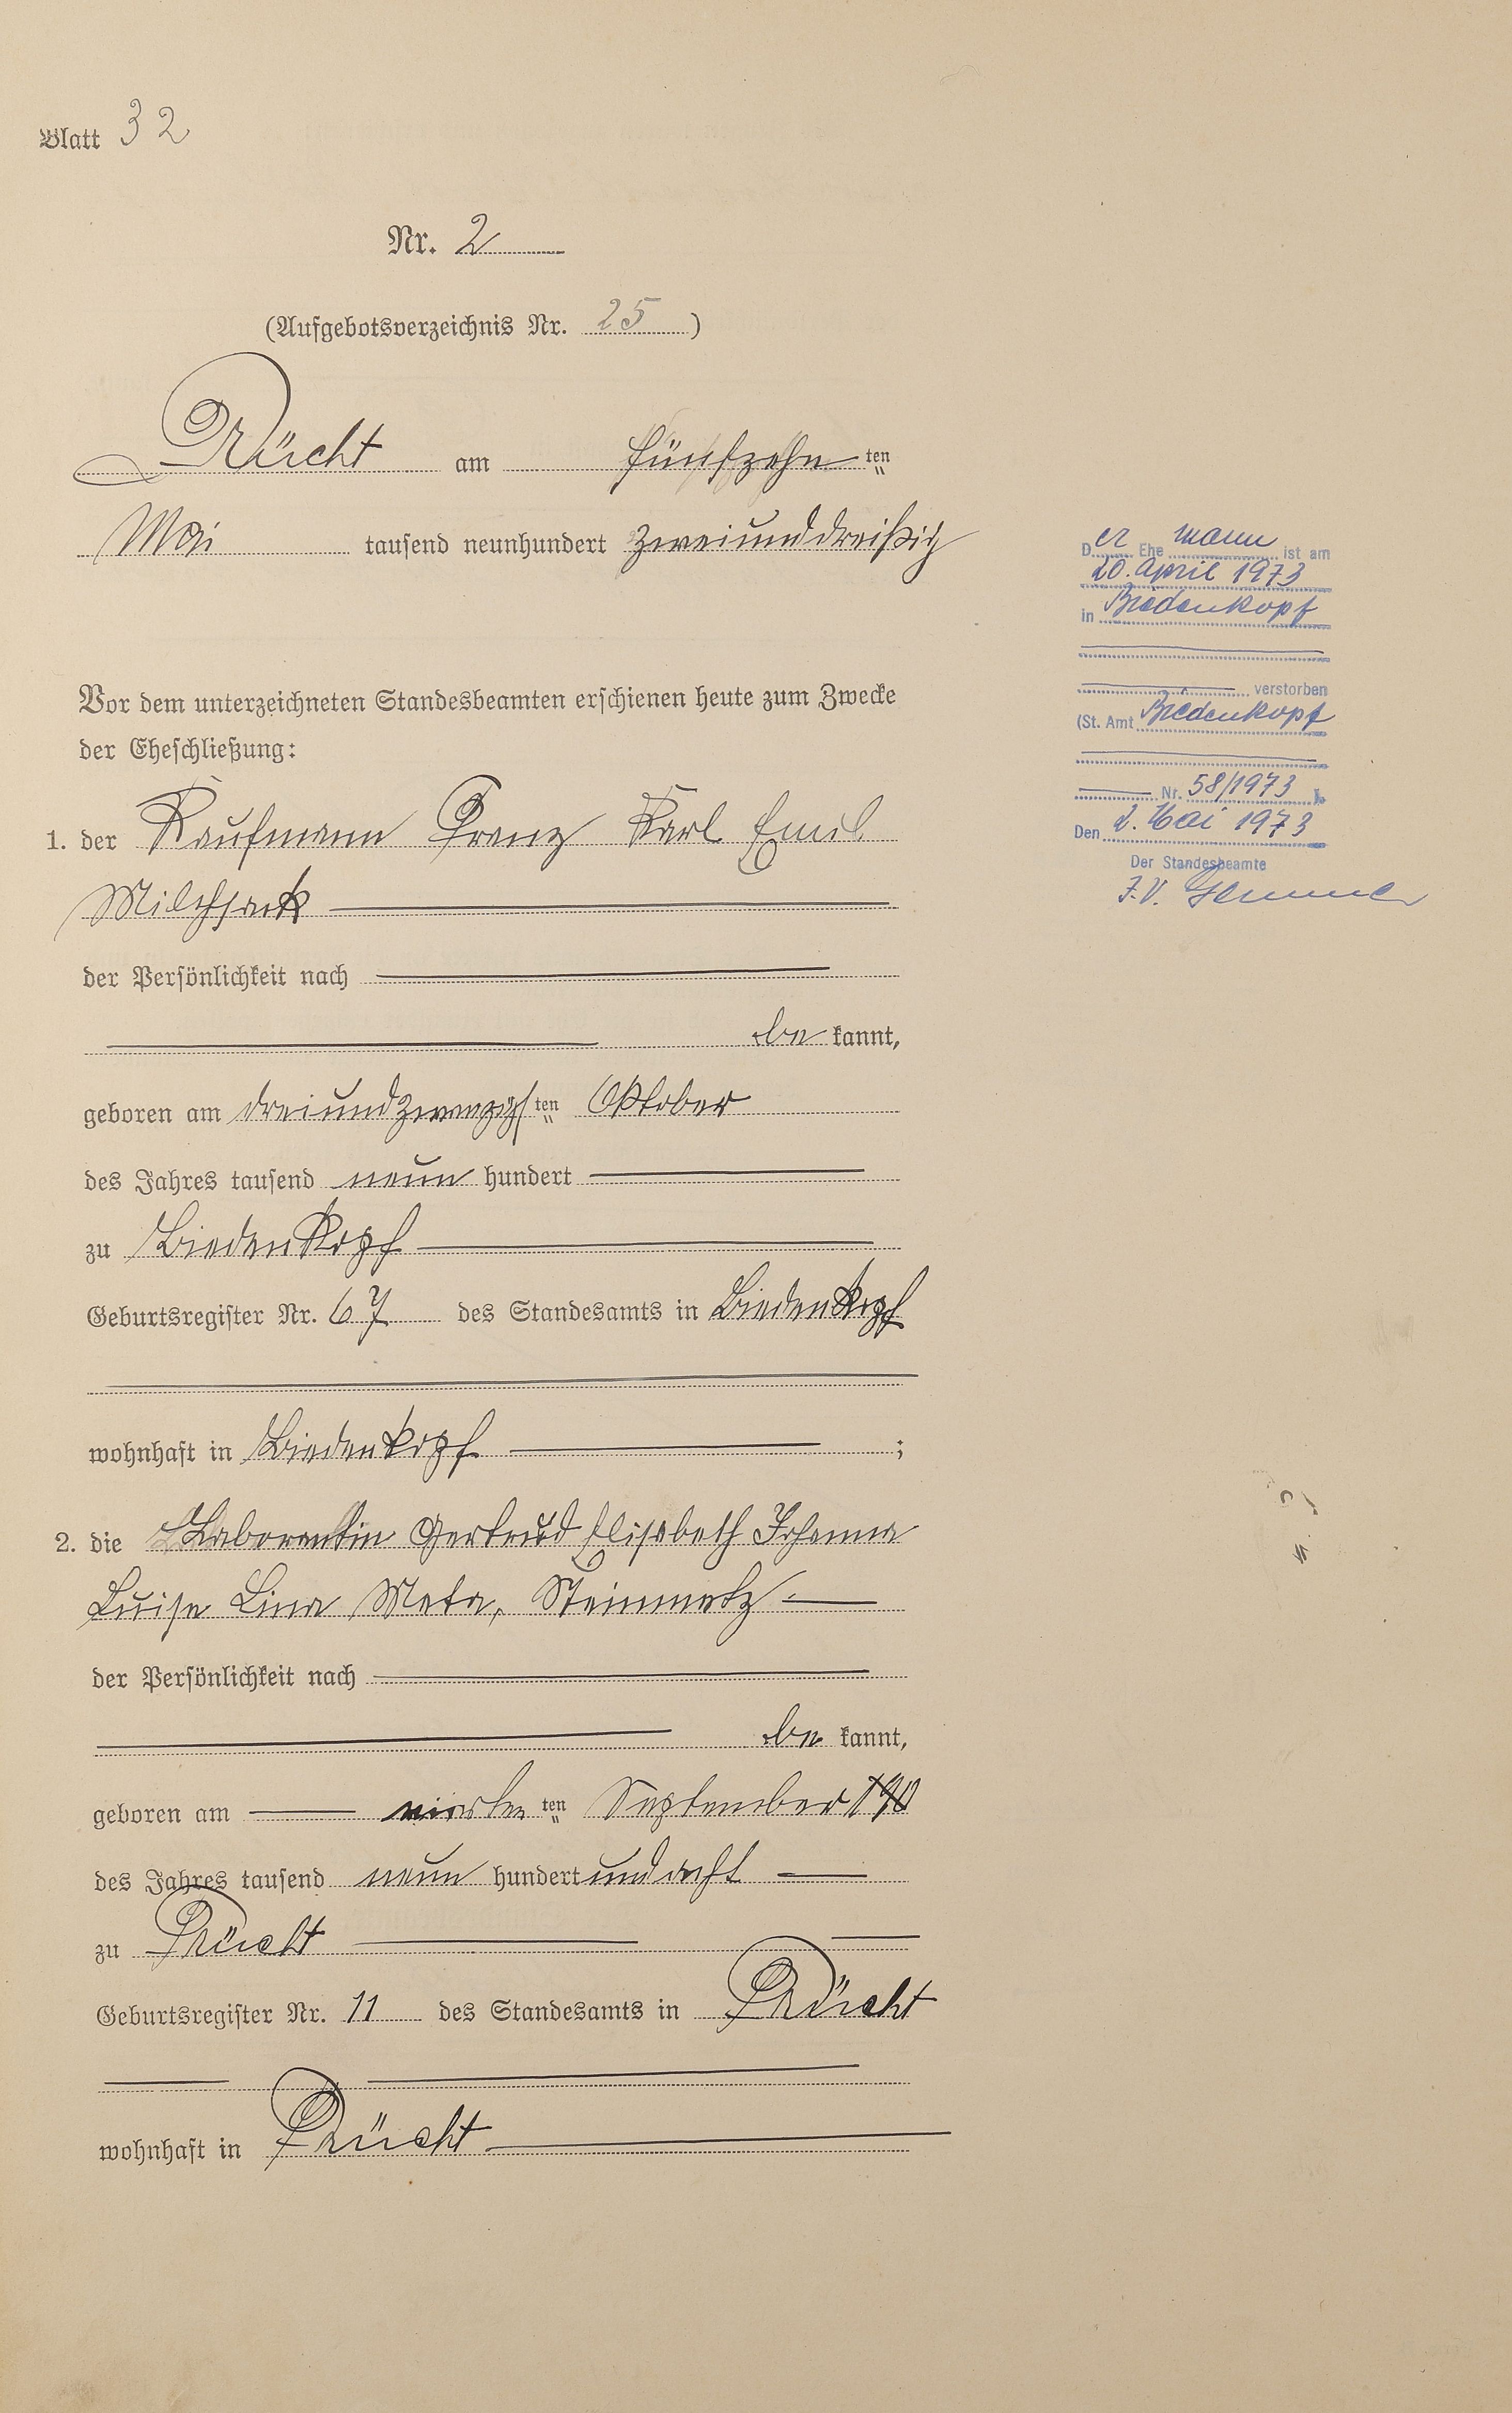 Blatt 32
Nr. 2
(Aufgebotsverzeichnis Nr. 25)
Frücht am fünfzehn ten
Mai tausend neunhundert zweiunddreißig
Vor dem unterzeichneten Standesbeamten erschienen heute zum Zwecke
der Eheschließung:
1. der Kaufmann Franz Karl Emil
Milchsack
der Persönlichkeit nach
be kannt,
geboren am dreiundzwanzigs ten Oktober
des Jahres tausend neun hundert
zu Biedenkopf
Geburtsregister Nr. 67 des Standesamts in Biedenkopf
wohnhaft in Biedenkopf ;
2. die Laborantin Gertrud Elisabeth Johanna
Luise Lina Meta, Steinmetz
der Persönlichkeit nach
be kannt,
geboren am vierten ten September 190
des Jahres tausend neun hundert und acht
zu Frücht
Geburtsregister Nr. 11 des Standesamts in Frücht
wohnhaft in Frücht
D er Ehe mann ist am
20. April 1973
in Biedenkopf
verstorben
(St. Amt Biedenkopf
Nr. 58/1973 )
Den 2. Mai 1973
Der Standesbeamte
I.V.